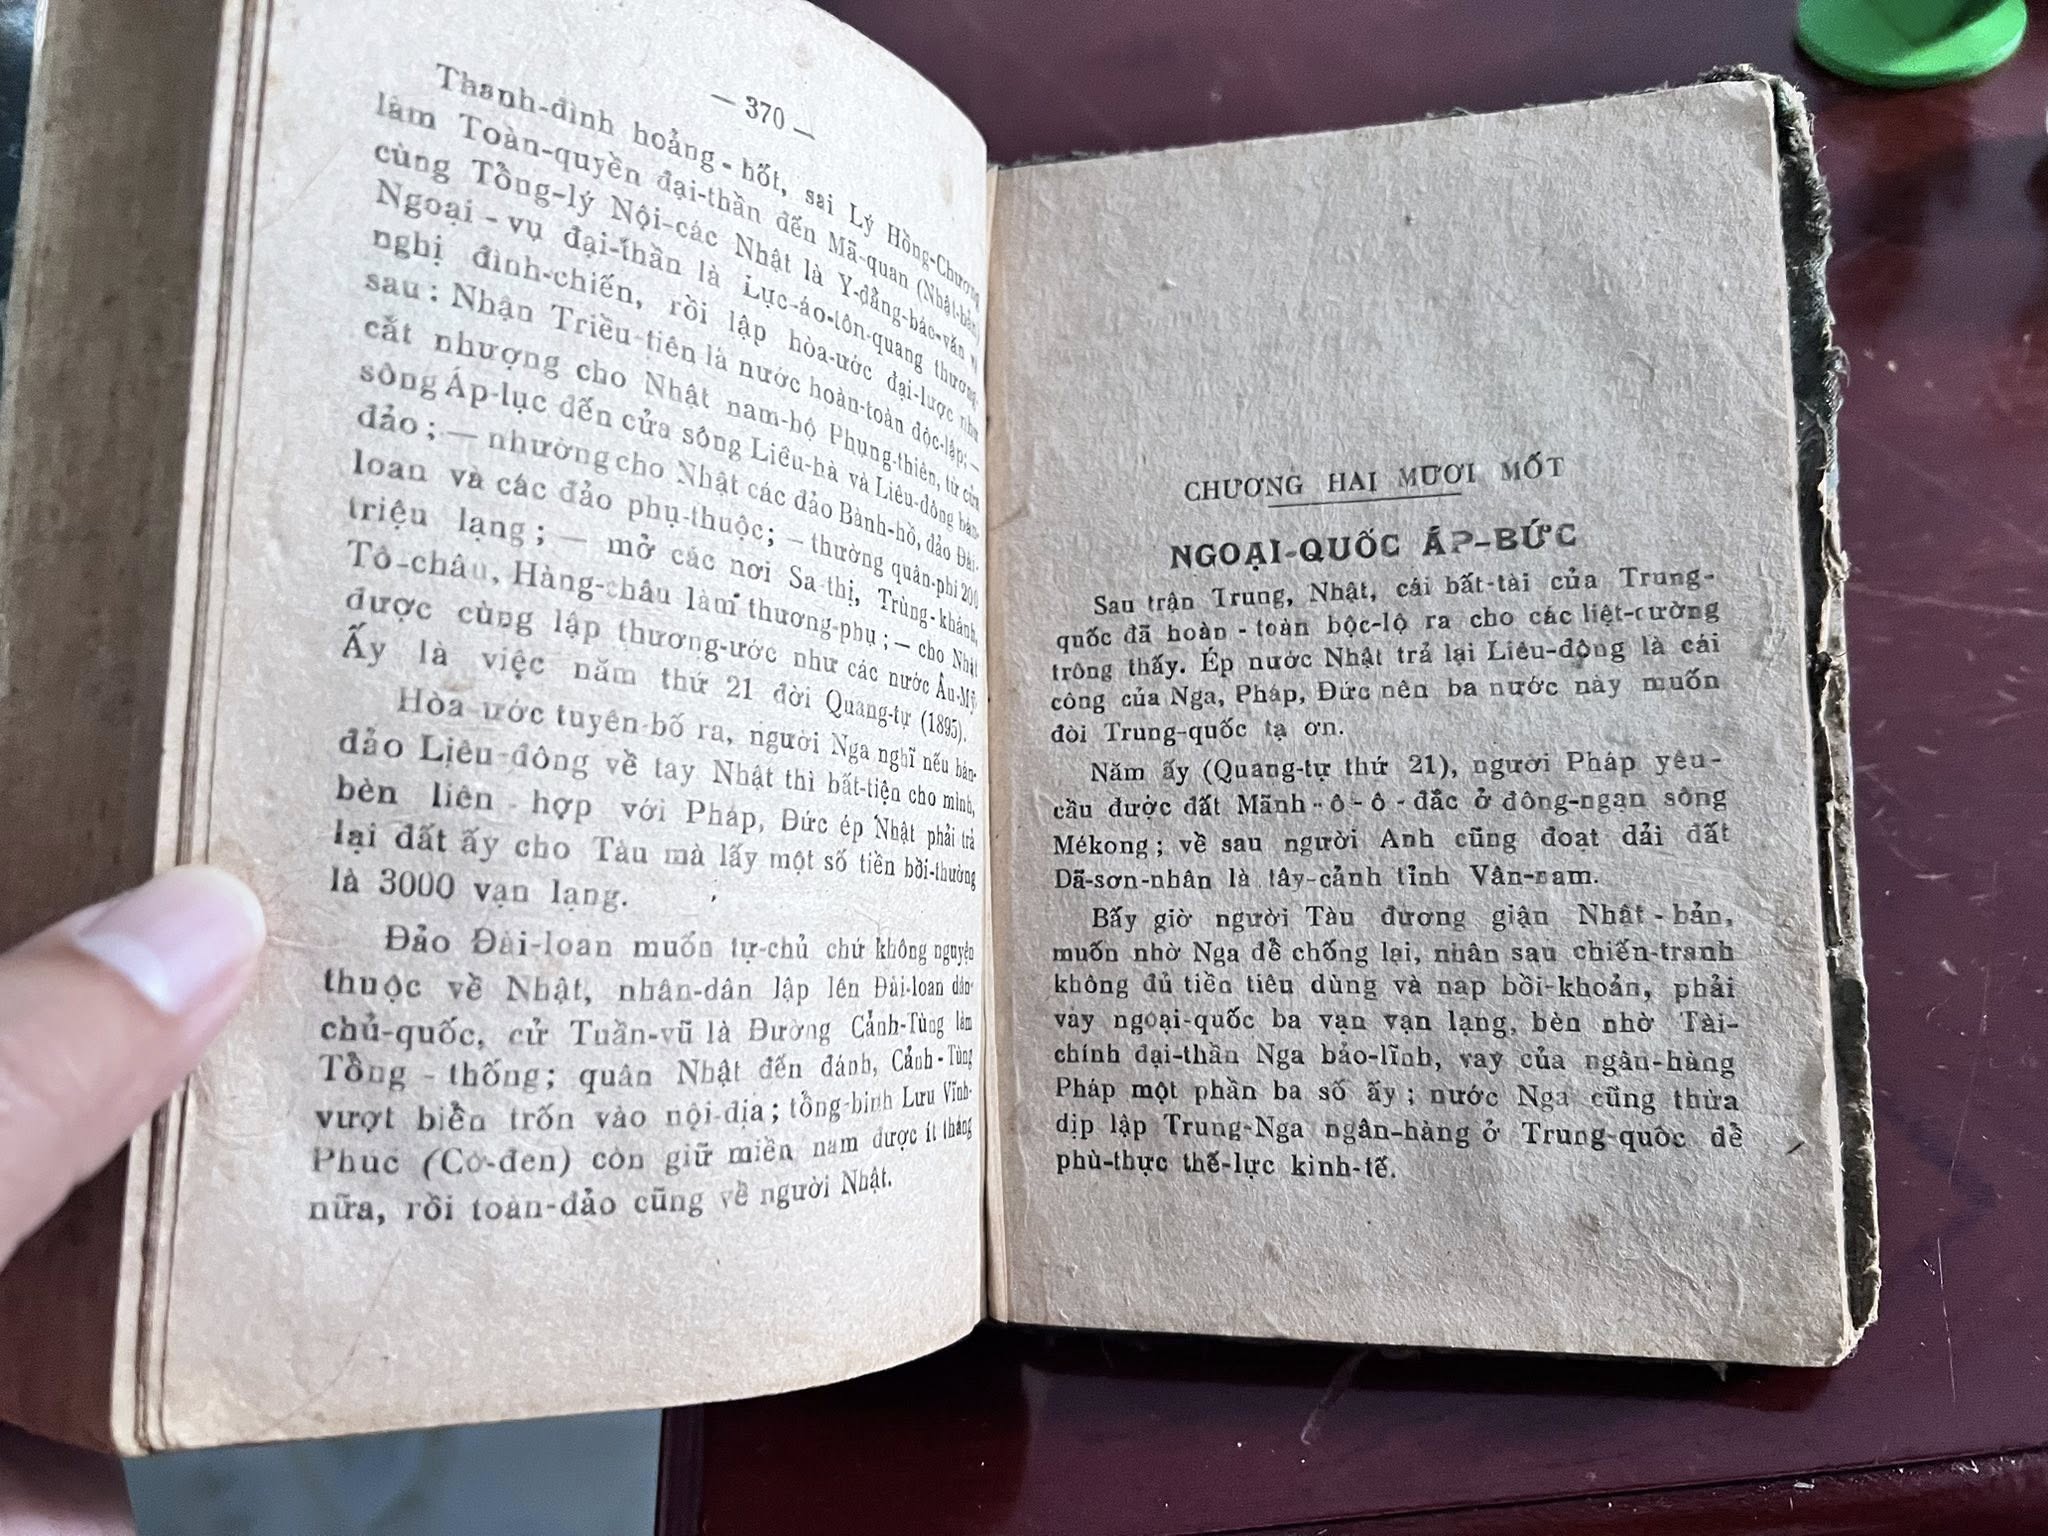 — 370 —
Thanh-đình hoảng-hốt, sai Lý Hồng-Chương
làm Toàn-quyền đại-thần đến Mã-quan (Nhật-bản)
cùng Tổng-lý Nội-các Nhật là Y-đằng-bác-văn
Ngoại-vụ đại-thần là Lục-áo-tôn-quang thương-
nghị đình-chiến, rồi lập hòa-ước đại-lược như
sau : Nhận Triều-tiên là nước hoàn-toàn độc-lập; —
cắt nhượng cho Nhật nam-bộ Phụng-thiên, từ cửa
sông Áp-lục đến cửa sông Liêu-hà và Liêu-đông bán-
đảo ; — nhường cho Nhật các đảo Bành-hồ, đảo Đài-
loan và các đảo phụ-thuộc; — thường quân-phí 200
triệu lạng ; — mở các nơi Sa-thị, Trùng-khánh,
Tô-châu, Hàng-châu làm thương-phụ ; — cho Nhật
được cùng lập thương-ước như các nước Âu-Mỹ
Ấy là việc năm thứ 21 đời Quang-tự (1895).
Hòa-ước tuyên-bố ra, người Nga nghĩ nếu bán-
đảo Liêu-đông về tay Nhật thì bất-tiện cho mình,
bèn liên-hợp với Pháp, Đức ép Nhật phải trả
lại đất ấy cho Tàu mà lấy một số tiền bồi-thường
là 3000 vạn lạng.
Đảo Đài-loan muốn tự-chủ chứ không nguyện
thuộc về Nhật, nhân-dân lập lên Đài-loan dân-
chủ-quốc, cử Tuần-vũ là Đường Cảnh-Tùng làm
Tổng-thống; quân Nhật đến đánh, Cảnh-Tùng
vượt biển trốn vào nội-địa ; tổng-binh Lưu Vĩnh-
Phúc (Cờ-đen) còn giữ miền nam được ít tháng
nữa, rồi toàn-đảo cũng về người Nhật.
CHƯƠNG HAI MƯƠI MỐT
NGOẠI-QUỐC ÁP-BỨC
Sau trận Trung, Nhật, cái bất-tài của Trung-
quốc đã hoàn-toàn bộc-lộ ra cho các liệt-cường
trông thấy. Ép nước Nhật trả lại Liêu-động là cái
công của Nga, Pháp, Đức nên ba nước này muốn
đòi Trung-quốc tạ ơn.
Năm ấy (Quang-tự thứ 21), người Pháp yêu-
cầu được đất Mãnh-ô-ô-đắc ở đông-ngạn sông
Mékong ; về sau người Anh cũng đoạt dải đất
Dã-sơn-nhân là tây-cảnh tỉnh Vân-nam.
Bấy giờ người Tàu đương giận Nhật-bản,
muốn nhờ Nga để chống lại, nhân sau chiến-tranh
không đủ tiền tiêu dùng và nạp bồi-khoản, phải
vay ngoại-quốc ba vạn vạn lạng, bèn nhờ Tài-
chính đại-thần Nga bảo-lĩnh, vay của ngân-hàng
Pháp một phần ba số ấy ; nước Nga cũng thừa
dịp lập Trung-Nga ngân-hàng ở Trung-quốc để
phù-thực thế-lực kinh-tế.